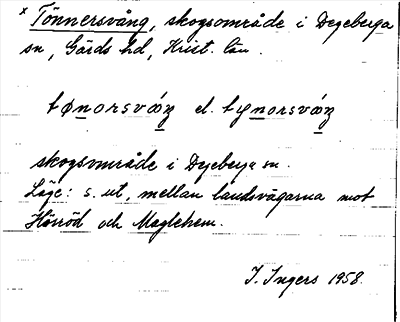 x Tönnersvång, skogsområde i Degeberga
sn, Gärds hd, Krist. län.
tønorsvóŋ el. tynorsvóŋ
skogsområde i Degeberga sn.
Läge: s. ut, mellan landsvägarna mot
Hörröd och Maglehem.
I. Ingers 1958.